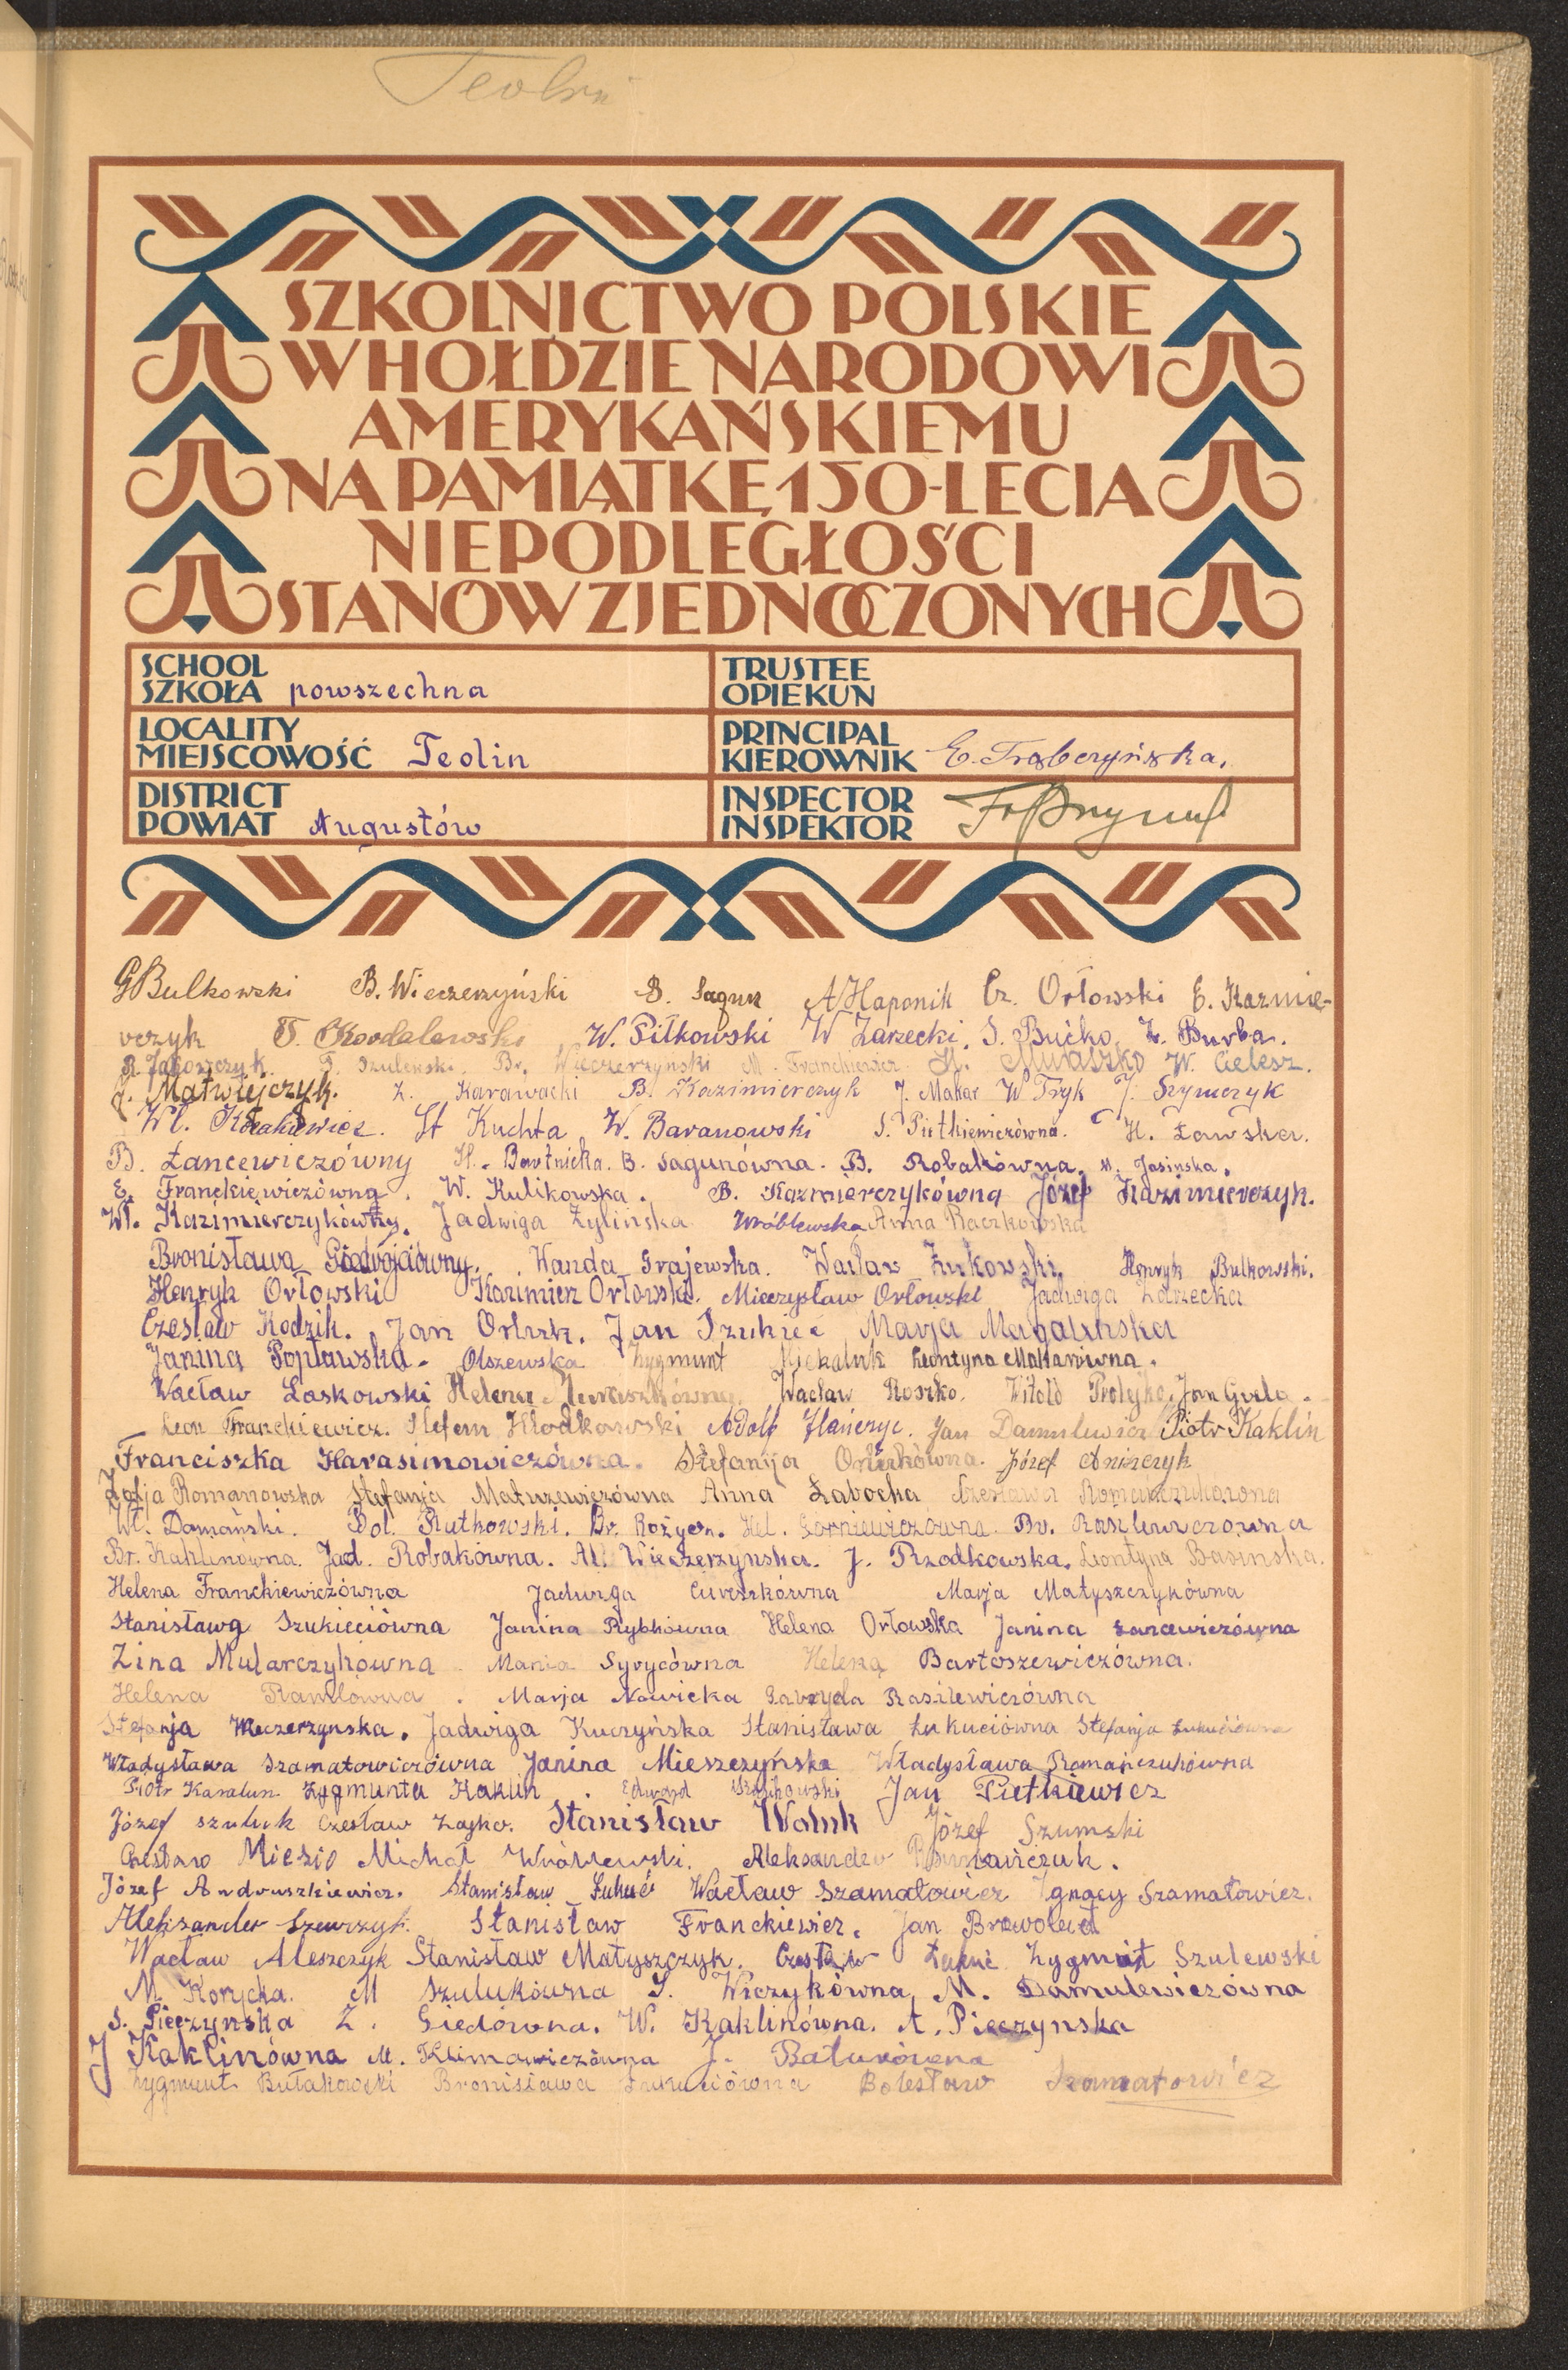 Teolin
SZKOLNICTWO POLSKIE
W HOŁDZIE NARODOWI
AMERYKAŃSKIEMU
NA PAMIĄTKĘ 150-LECIA
NIEPODLEGŁOŚCI
STANÓW ZJEDNOCZONYCH
SCHOOL
SZKOŁA powszechna
TRUSTEE
OPIEKUN
LOCALITY
MIEJSCOWOŚĆ Teolin
PRINCIPAL
KIEROWNIK E. Trąbczyńska.
DISTRICT
POWIAT Augustów
INSPECTOR
INSPEKTOR
G Bulkowski B. Wieczerzyński S. Sagun A Haponik Cz. Orłowski E. Kazmie-
rczyk W. Piłkowski W Zarzecki. S. Bućko. Z. Burba.
R. Jagowczyk. F. Szulewski. Br. Wieczerzyński M. Franckiewicz H. Muraszko W. Cielesz.
J. Matwiejczyk. Z. Karawacki B. Kazimierczyk J. Makar W Tryk J. Szymczyk
Wł. St Kuchta W. Baranowski S. Pietkiewiczówna. H. Ławska.
B. Łancewiczówny H. Bartnicka. B. Sagunówna. B. Robakówna. M. Jasinska.
E. Franckiewiczówna. W. Kulikowska. B. Kazmierczykówna Józef Kazimierczyk.
Wł. Kazimierczykówny. Jadwiga Żylińska Wróblewska Anna Raczkowska
Bronisława Wanda Grajewska. Wacław Żukowski. Henryk Bulkowski.
Henryk Orłowski Kazimierz Orłowski. Mieczysław Orłowski Jadwiga Zarzecka
Czesław Kodzik. Jan Jan Szukieć Marja Magalinska
Janina Popławska. Olszewska Zygmunt Leontyna Makarówna.
Wacław Laskowski Helena Muraszkówna. Wacław Roszko. Witold Jan
Leon Franckiewicz. Stefan Kłodkowski Adolf Hańczyc. Jan Damulewicz Piotr Kaklin
Franciszka Harasimowiczówna. Stefanija Józef Aniszczyk
Zofja Romanowska Stefanja Matuzewiczówna Anna Żabocka
Wł. Domański. Bol. Rutkowski. Br. Hel. Gorniewiczówna. Br. Rasilewiczowna
Br. Kaklinówna. Jad. Robakówna. Al. Wieczerzynska. J. Rzodkowska. Leontyna Basinska.
Helena Franckiewiczówna Jadwiga Marja Matyszczykówna
Stanisława Szukieciówna Janina Rybkówna Helena Orłowska Janina Łancewiczówna
Zina Mularczykówna Mania Syrycówna Helena Bartoszewiczówna.
Helena Ramlówna. Marja Nowicka Gabryela Rasilewiczówna
Stefanja Wieczerzynska. Jadwiga Kuczyńska Stanisława Łukuciówna Stefanja Łukuciówna
Władysława Szamatowiczówna Janina Mieszczyńska Władysława Romańczukówna
Piotr Karalun Zygmunta Kaklin. Edward Jan Pietkiewicz
Józef Szuluk Czesław Zajko. Stanisław Waluk Józef Szumski
Czesław Miezio Michał Wróblewski. Aleksandro Romańczuk.
Józef Andruszkiewicz. Stanisław Łukuć Wacław Szamatowicz Ignacy Szamatowicz.
Aleksander Szewczyk. Stanisław Franckiewicz. Jan
Wacław Aleszczyk Stanisław Matyszczyk. Czesław Łukuć Zygmunt Szulewski
M. Korycka. M Szulukówna S. Wiczykówna, M. Damulewiczówna
S. Pieczyńska Z. Giedówna. W. Kaklinówna. A. Pieczynska
J Kaklinówna M. Klimowiczówna J. Baturówna
Zygmunt Bułakowski Bronisława Łukuciówna Bolesław Szamatowicz